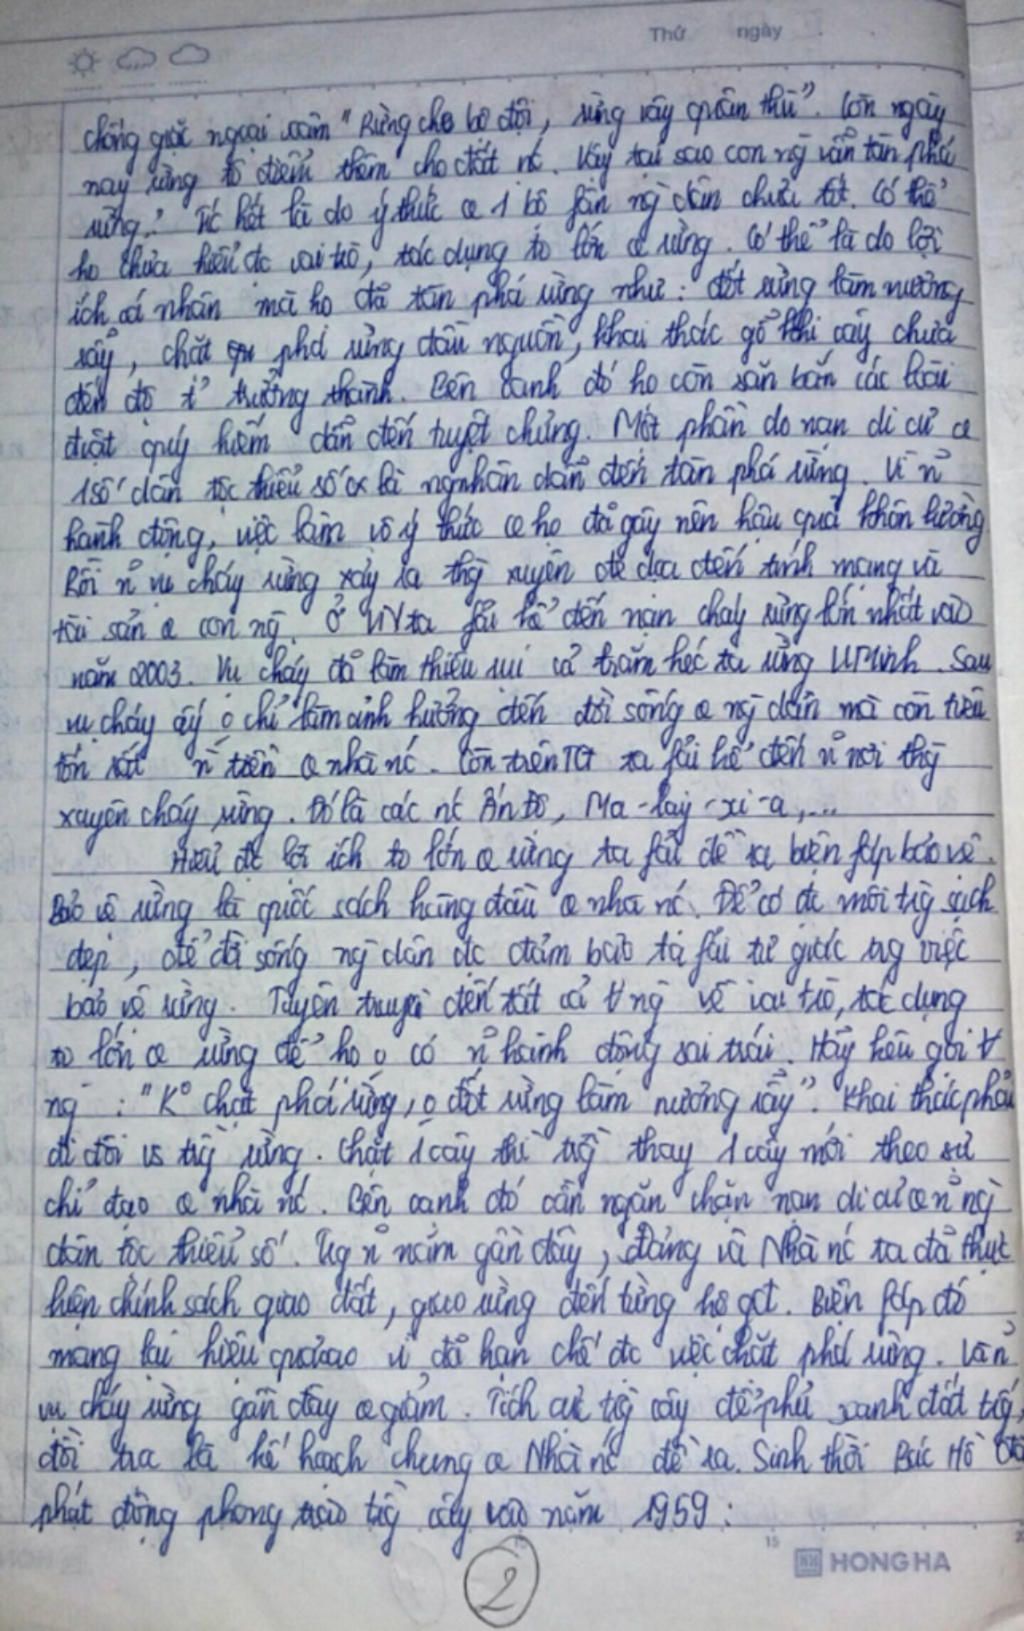 Thứ ngày
chống giặc ngoại xâm "Rừng che bộ đội, rừng vây quân thù". Còn ngày
nay rừng tô điểm thêm cho đất nc. Vậy tại sao con ng vẫn tàn phá
rừng? Tc hết là do ý thức 1 bộ fận ng dân chưa tốt. Có thể
họ chưa hiểu đc vai trò, tác dụng to lớn rừng. Có thể là do lợi
ích cá nhân mà họ đã tàn phá rừng như: đốt rừng làm nương
rẫy, chặt phá rừng đầu nguồn, khai thác gỗ khi cây chưa
đến độ trưởng thành. Bên cạnh đó họ còn săn bắn các loài
đvật quý hiếm dẫn đến tuyệt chủng. Một phần do nạn di cư
1 số dân tộc thiểu số là ng nhân dẫn đến tàn phá rừng. Vì n~
hành động, việc làm vô ý thức họ đã gây nên hậu quả khôn lường
Rồi n~ vụ cháy rừng xảy ra thg xuyên đe dọa đến tính mạng và
tài sản con ng. Ở VN ta fải kể đến nạn cháy rừng lớn nhất vào
năm 2003. Vụ cháy đã làm thiêu rụi cả trăm héc ta rừng U Minh. Sau
vụ cháy ấy o chỉ làm ảnh hưởng đến đời sống ng dân mà còn tiêu
tốn rất n` tiền nhà nc. Còn trên TG ta fải kể đến n~ nơi thg
xuyên cháy rừng. Đó là các nc Ấn Độ, Ma-lay-xi-a,...
Hiểu đc lợi ích to lớn rừng ta fải đề ra biện fáp bảo vệ.
Bảo vệ rừng là quốc sách hàng đầu nhà nc. Để có đc môi trg sạch
đẹp, để đời sống ng dân đc đảm bảo ta fải tự giác trg việc
bảo vệ rừng. Tuyên truyền đến tất cả ∀ ng về vai trò, tác dụng
to lớn rừng để họ o có n~ hành động sai trái. Hãy kêu gọi ∀
ng : "Ko chặt phá rừng, o đốt rừng làm nương rẫy". Khai thác phải
đi đôi vs trg rừng. Chặt 1 cây thì trg thay 1 cây mới theo sự
chỉ đạo nhà nc. Bên cạnh đó cần ngăn chặn nạn di cư n~ ng
dân tộc thiểu số. Trg n~ năm gần đây, Đảng và Nhà nc ta đã thực
hiện chính sách giao đất, giao rừng đến từng hộ gđ. Biện fáp đó
mang lại hiệu quả cao vì đã hạn chế đc việc chặt phá rừng.
vụ cháy rừng gần đây giảm. Tích cực trg cây để phủ xanh đất trg,
đồi trọc là kế hoạch chung Nhà nc đề ra. Sinh thời Bác Hồ đã
phát động phong trào trg cây vào năm 1959:
2
15
HONG HA